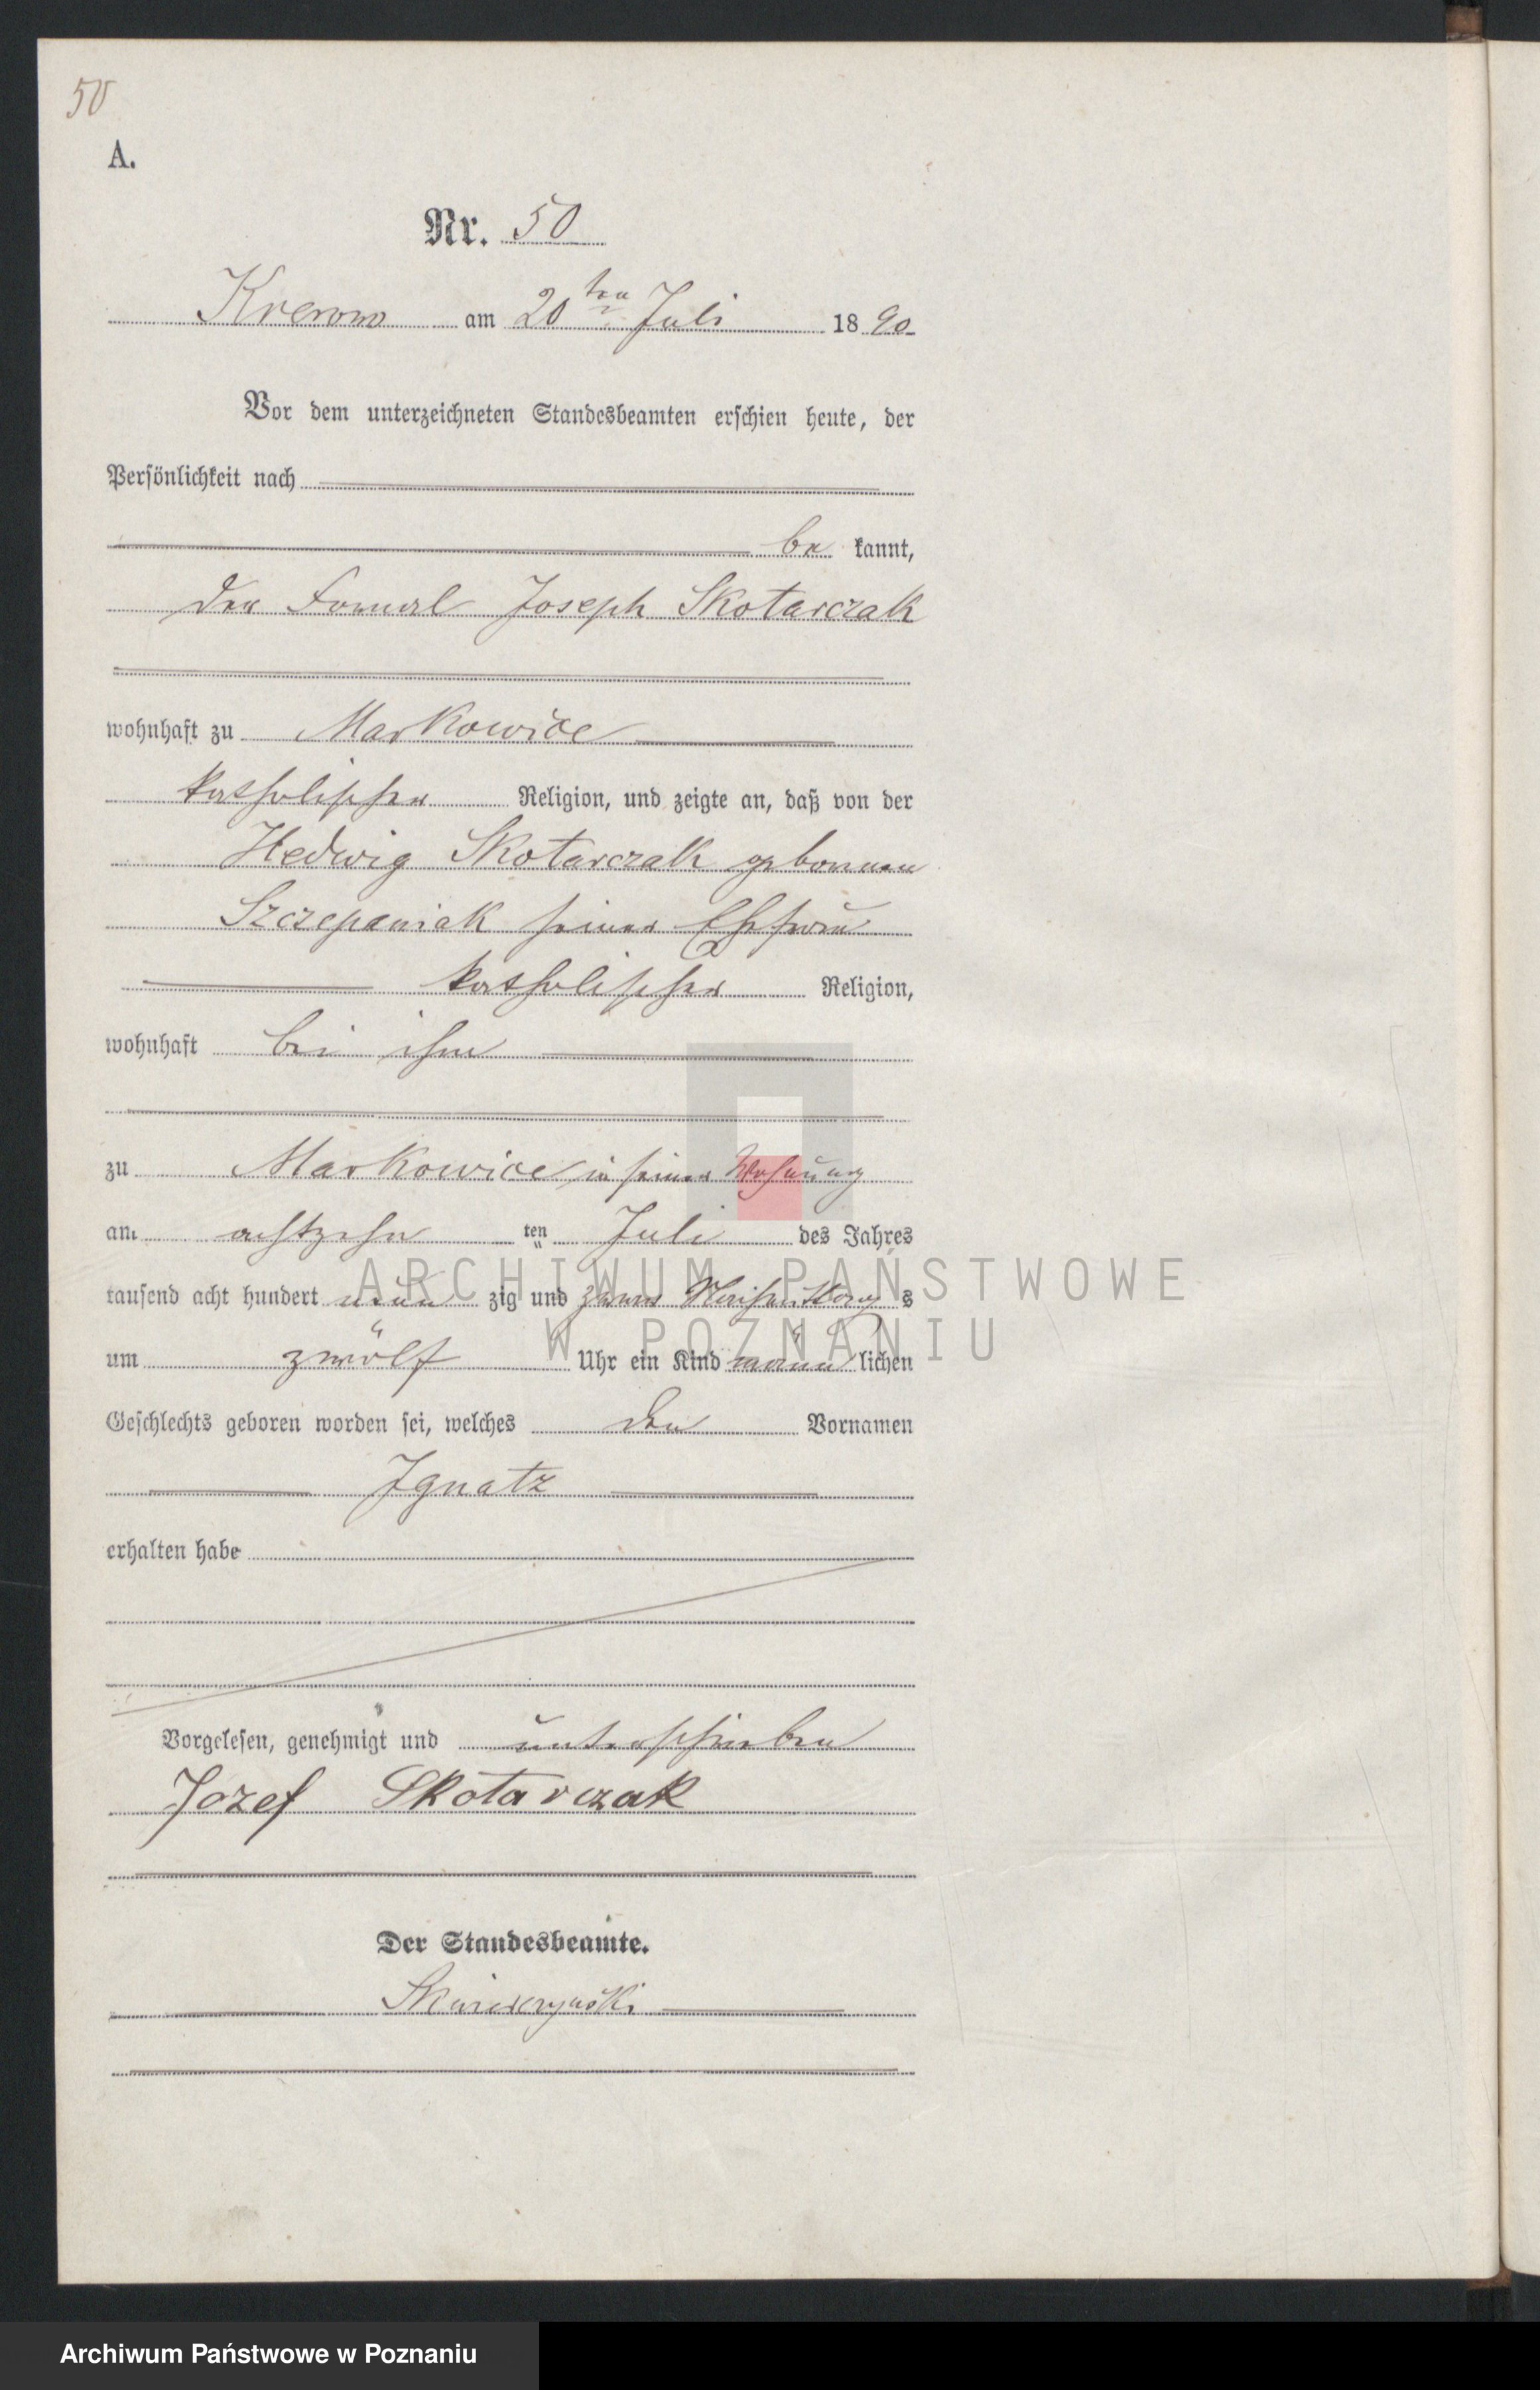 50
A.
Nr. 50
Krerowo am 20ten Juli 1890
Vor dem unterzeichneten Standesbeamten erschien heute, der
Persönlichkeit nach
be kannt,
der Fornal Joseph Skotarczak
wohnhaft zu Markowice
katholischer Religion, und zeigte an, daß von der
Hedwig Skotarczak geborenen
Szczepaniak seiner Ehefrau
katholischer Religion,
wohnhaft bei ihm
zu Markowice in seiner Wohnung
am achtzehn ten Juli des Jahres
tausend acht hundert neun zig und zwar Nachmittags
um zwölf Uhr ein Kind männlichen
Geschlechts geboren worden sei, welches den Vornamen
Ignatz
erhalten habe
Vorgelesen, genehmigt und unterschrieben
Jozef Skotarczak
Der Standesbeamte.
ARCHIWUM PAŃSTWOWE
W POZNANIU
Archiwum Państwowe w Poznaniu